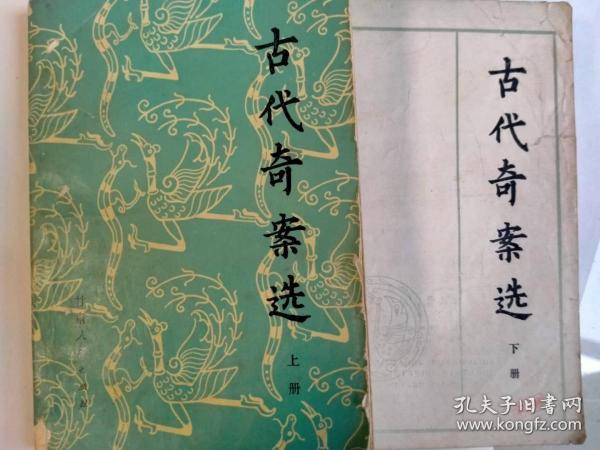 古代奇案选
上册
古代奇案选
下册
孔夫子旧书网
www.kongfz.com